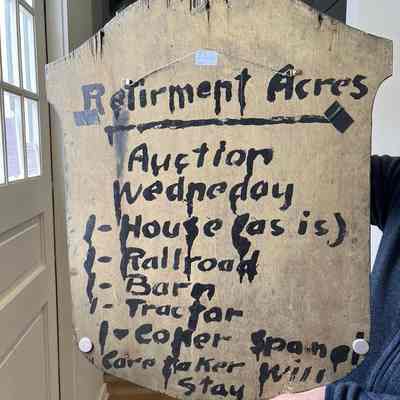 Retirment Acres
Auction
Wednesday
1- House (as is)
1- Railroad
1- Barn
1- Tractor
1- Coker Spaniel
Caretaker Will
Stay